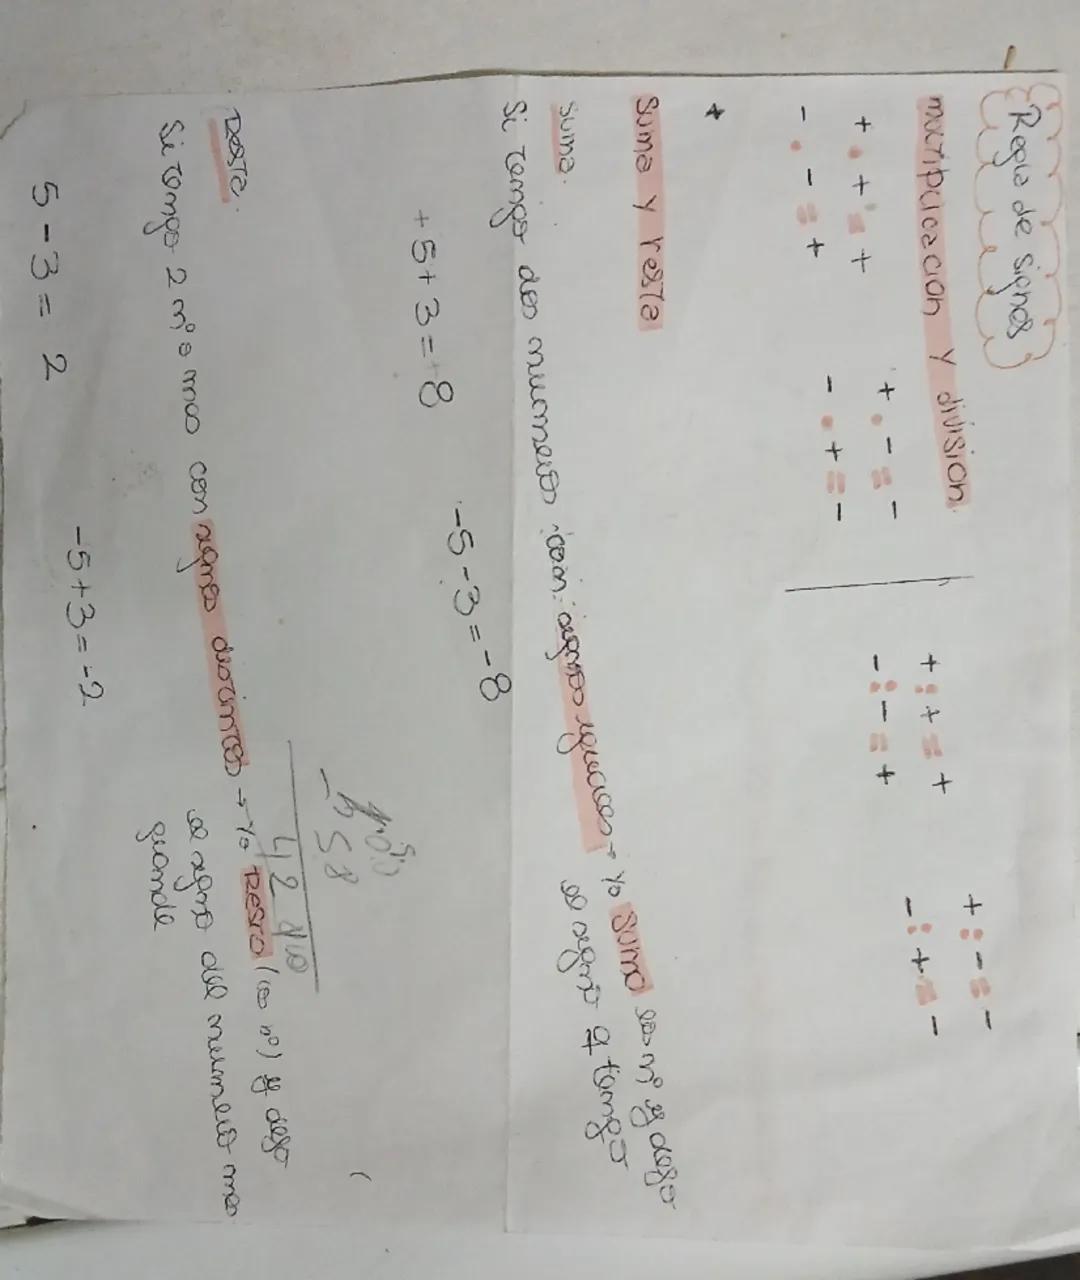 Regla de signos
multiplicación y división.
+ . + = +   + . - = -   + : + = +   + : - = -
- . - = +   - . + = -   - : - = +   - : + = -
+
Suma y resta
Suma.
Si tengo dos numeros con signos iguales → yo sumo los nº y dejo
el signo q tengo
+5+3=+8   -5-3=-8
Resta.
Si tengo 2 nº o mas con signos distintos → yo Resto (los nº) y dejo
el signo del numero mas
grande
5-3= 2   -5+3=-2